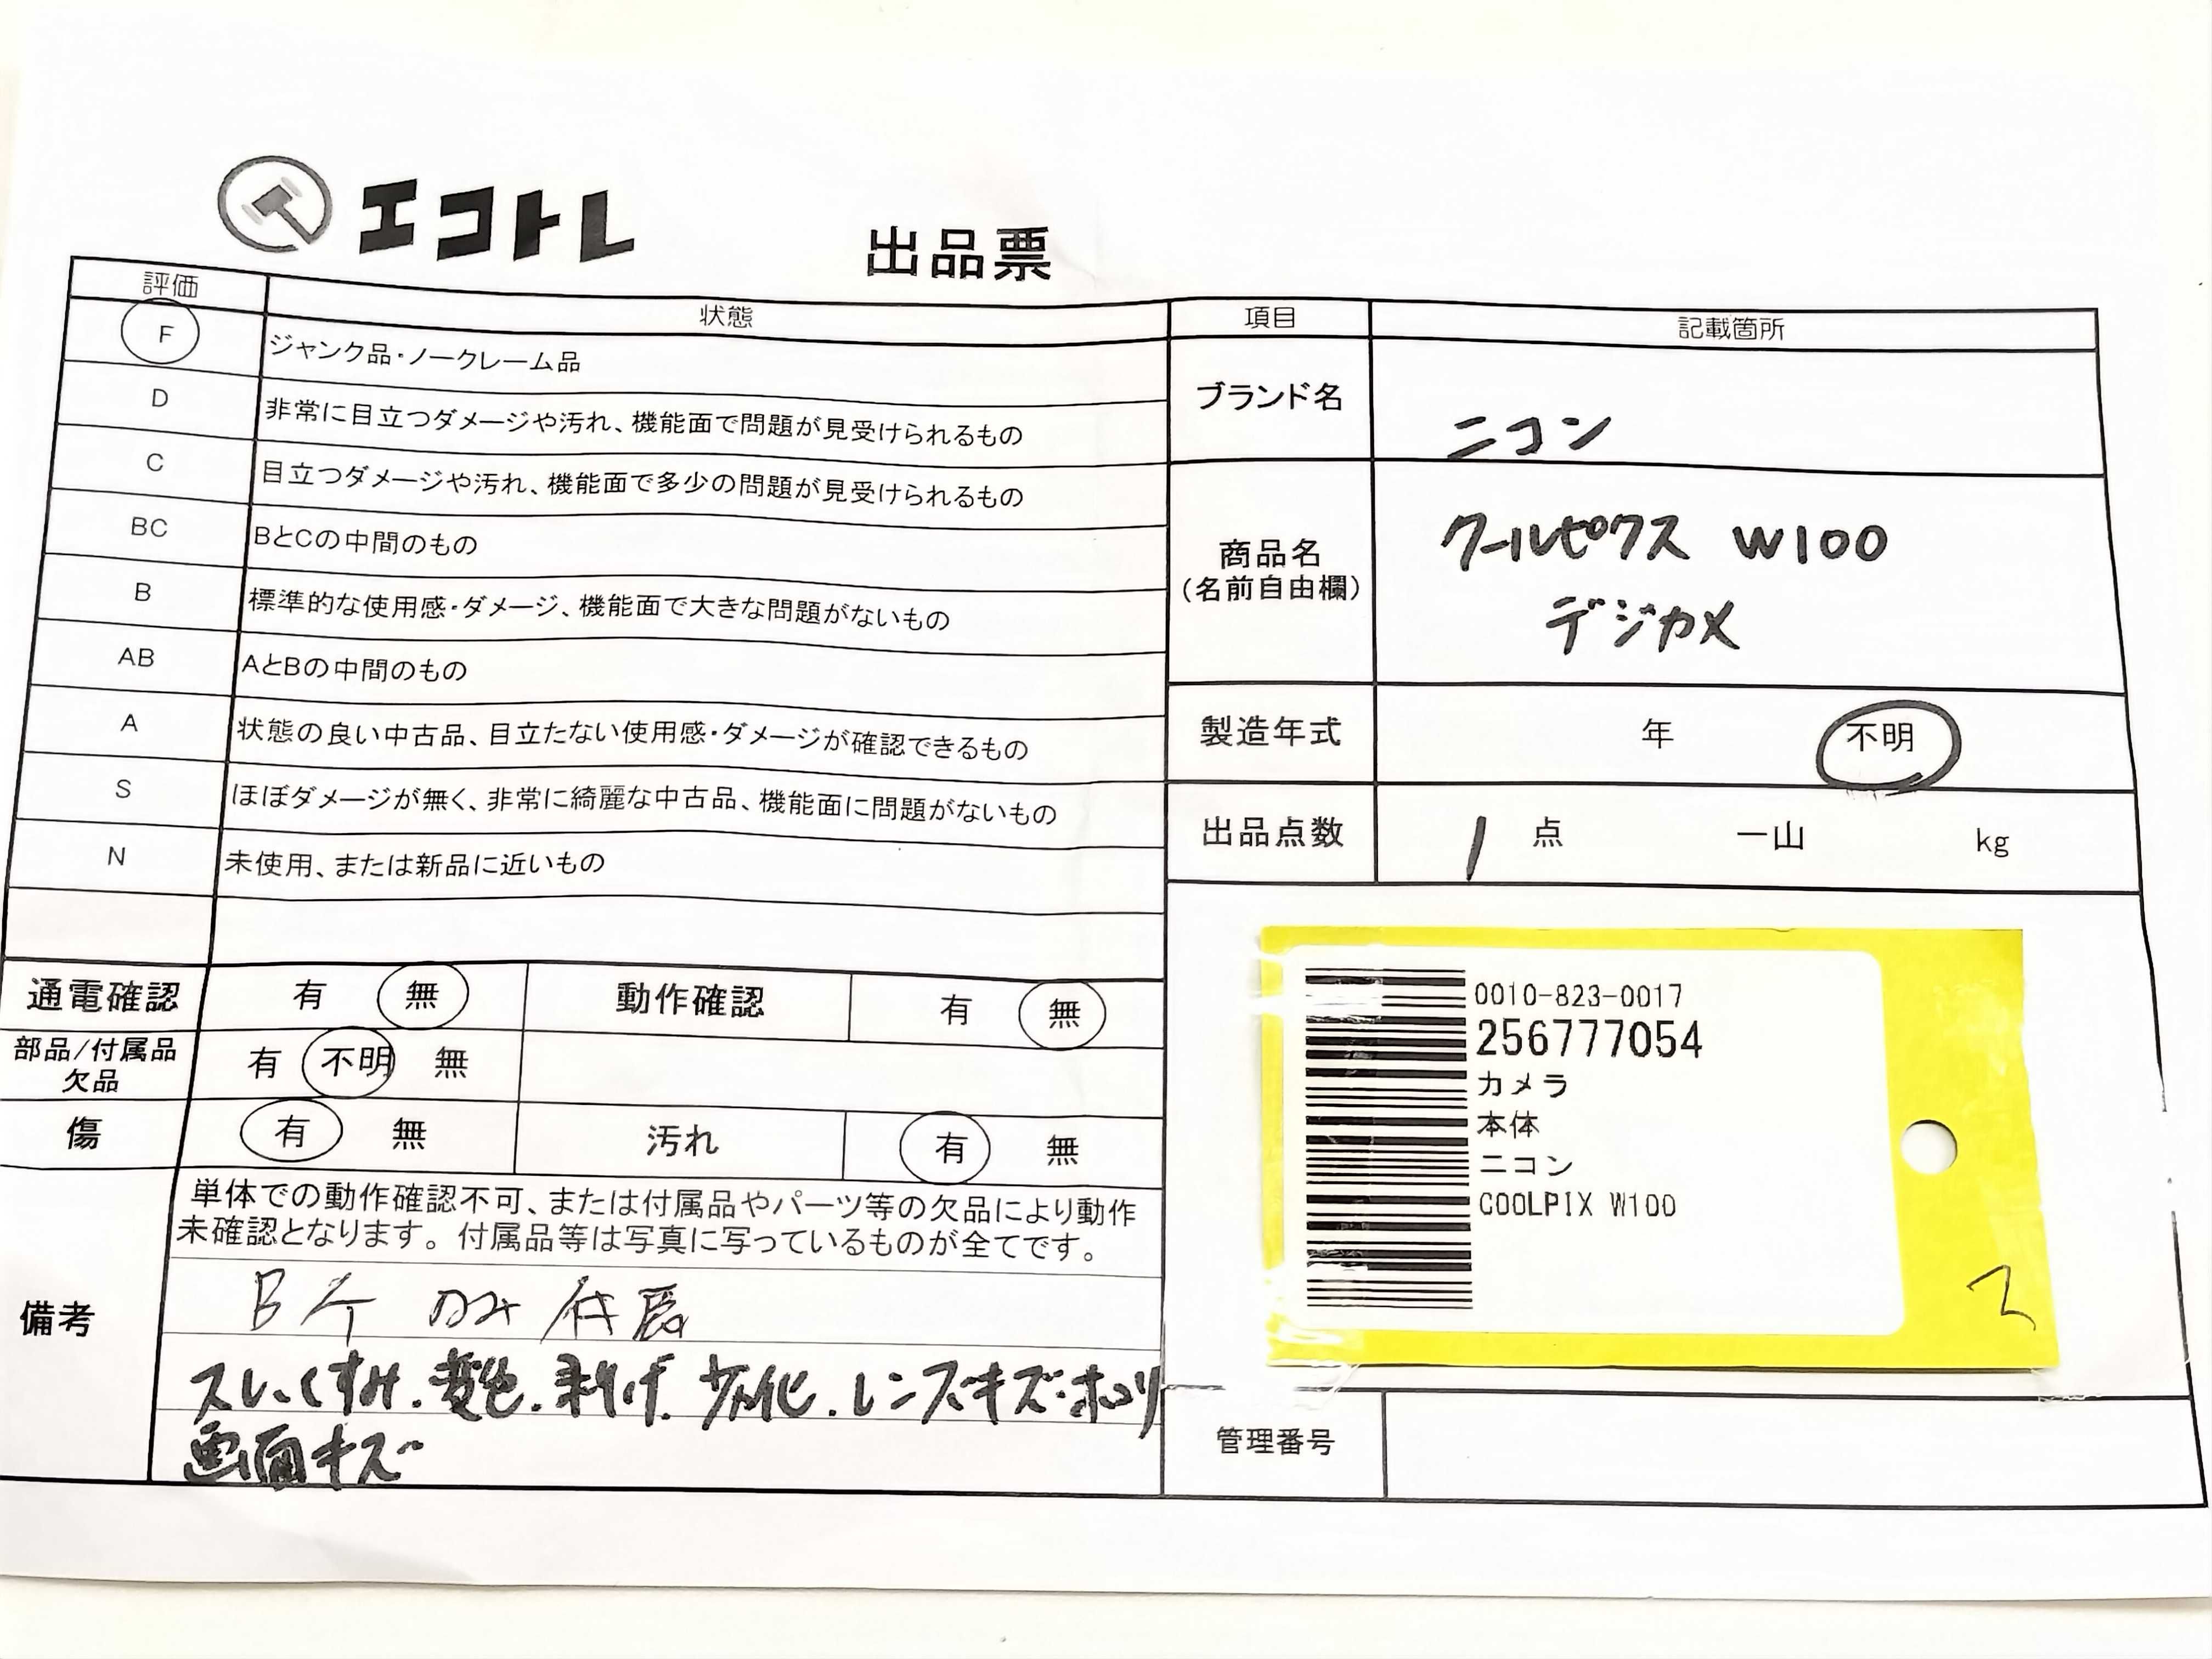 エコトレ
出品票
評価 状態
F ジャンク品・ノークレーム品
D 非常に目立つダメージや汚れ、機能面で問題が見受けられるもの
C 目立つダメージや汚れ、機能面で多少の問題が見受けられるもの
BC BとCの中間のもの
B 標準的な使用感・ダメージ、機能面で大きな問題がないもの
AB AとBの中間のもの
A 状態の良い中古品、目立たない使用感・ダメージが確認できるもの
S ほぼダメージが無く、非常に綺麗な中古品、機能面に問題がないもの
N 未使用、または新品に近いもの
通電確認 有 無 動作確認 有 無
部品/付属品
欠品
有 不明 無
傷 有 無 汚れ 有 無
備考
単体での動作確認不可、または付属品やパーツ等の欠品により動作
未確認となります。付属品等は写真に写っているものが全てです。
のみ付属
スレ.くすみ.変色.剥げ.劣化.レンズキズ・ホコリ
画面キズ
項目 記載箇所
ブランド名 ニコン
商品名
(名前自由欄)
クールピクス W100
デジカメ
製造年式 年 不明
出品点数 1 点 一山 kg
0010-823-0017
256777054
カメラ
本体
ニコン
COOLPIX W100
管理番号